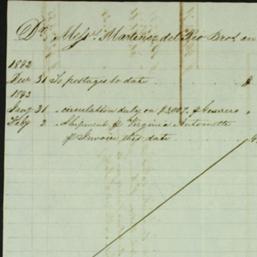 Dr. Messrs. Martinez del Rio Bros. an
1842
Nov 31 To postages to date
1843
Jany 31 " circulation duty on $3007. p
Feby 2 " Shipment p Virginia Antoinette
p Invoice this date